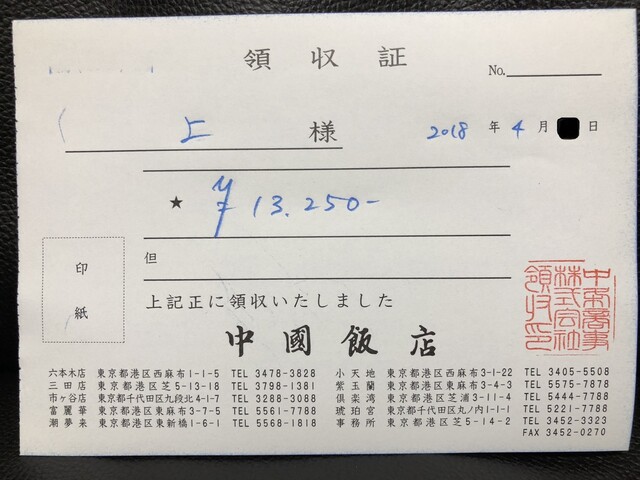 領収証
No.
上 様
2018 年 4 月 日
★ ¥13.250-
但
印
紙
上記正に領収いたしました
中國飯店
六本木店 東京都港区西麻布1-1-5 TEL 3478-3828
三田店 東京都港区芝5-13-18 TEL 3798-1381
市ヶ谷店 東京都千代田区九段北4-1-7 TEL 3288-3088
富麗華 東京都港区東麻布3-7-5 TEL 5561-7788
潮夢来 東京都港区東新橋1-6-1 TEL 5568-1818
小天地 東京都港区西麻布3-1-22 TEL 3405-5508
紫玉蘭 東京都港区東麻布3-4-3 TEL 5575-7878
倶楽湾 東京都港区芝浦3-11-4 TEL 5444-7788
琥珀宮 東京都千代田区丸ノ内1-1-1 TEL 5221-7788
事務所 東京都港区芝5-14-2 TEL 3452-3323
FAX 3452-0270
株式会社
領収印